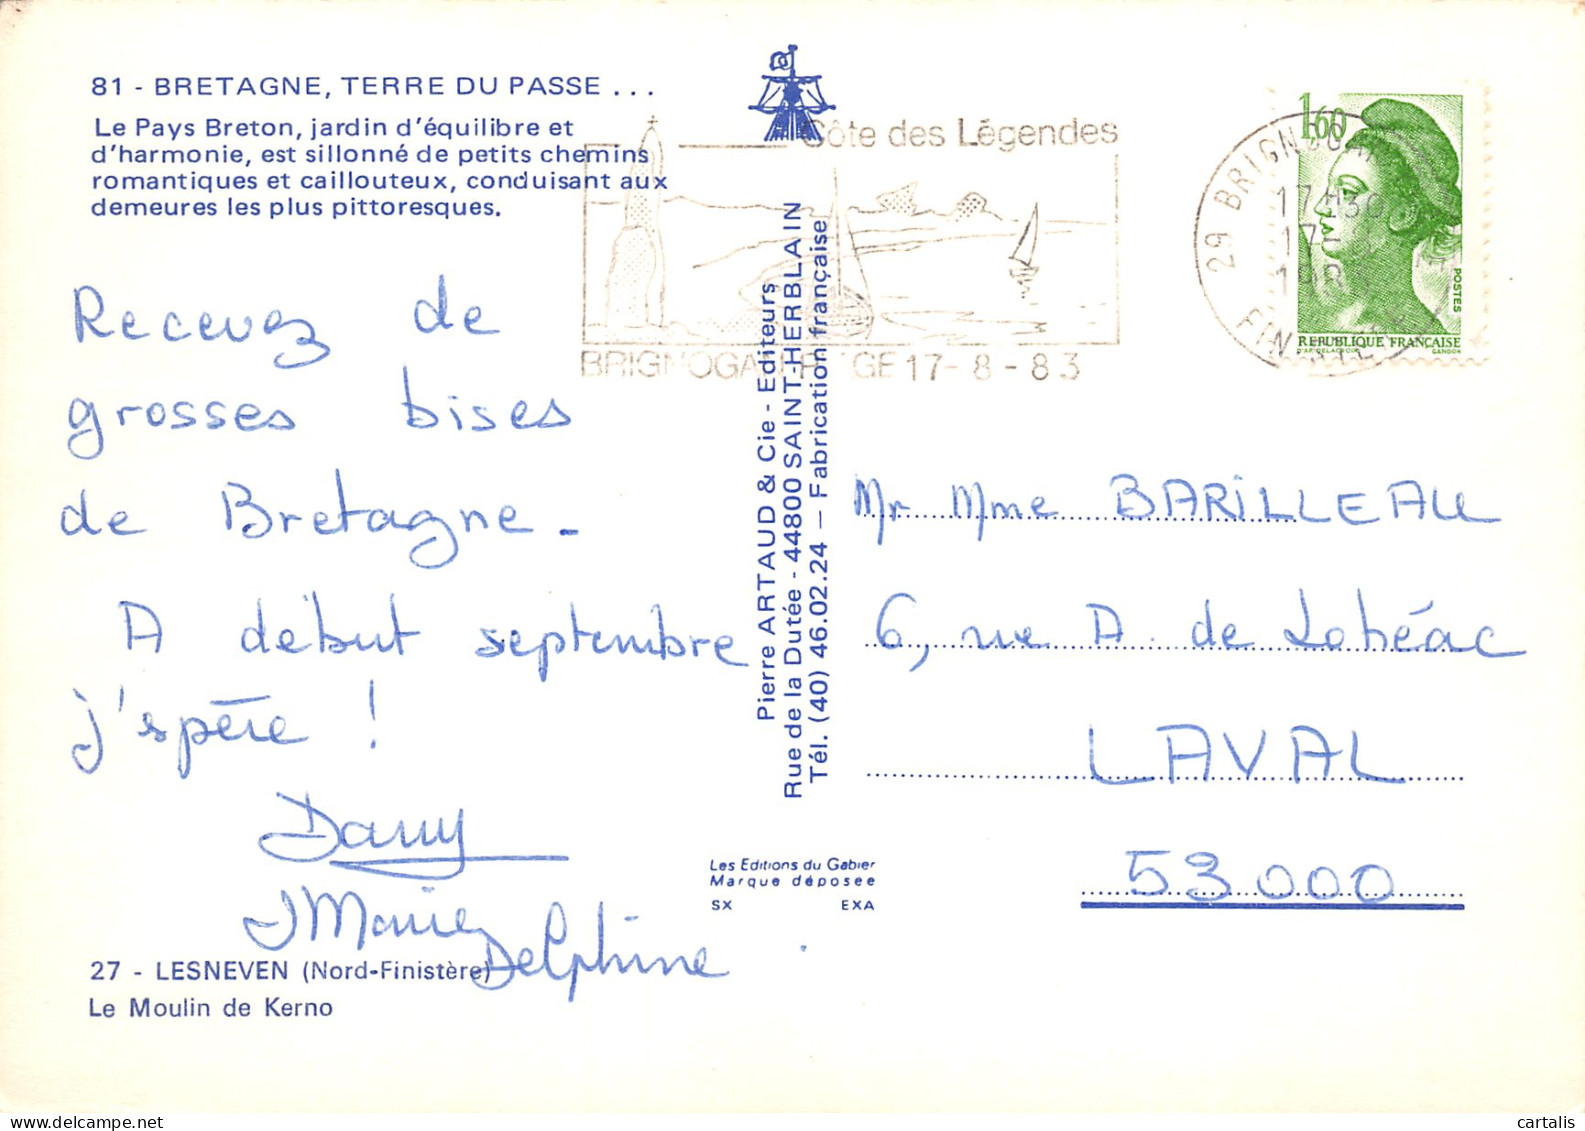 81 - BRETAGNE, TERRE DU PASSE ...
Le Pays Breton, jardin d'équilibre et
d'harmonie, est sillonné de petits chemins
romantiques et caillouteux, conduisant aux
demeures les plus pittoresques.
Côte des Légendes
17-8-83
29
17H30
17-
1,60
POSTES
REPUBLIQUE FRANÇAISE
D'AP. DELACROIX
GANDON
Recevez de
grosses bises
de Bretagne.
A début septembre
j'espère !
Dany
JMarie
Delphine
Pierre ARTAUD & Cie - Editeurs
Rue de la Dutée - 44800 SAINT-HERBLAIN
Tél. (40) 46.02.24 — Fabrication française
Mr Mme BARILLEAU
6, rue A. de Lohéac
LAVAL
53000
Les Editions du Gabier
Marque déposee
SX EXA
27 - LESNEVEN (Nord-Finistère)
Le Moulin de Kerno
cartalis